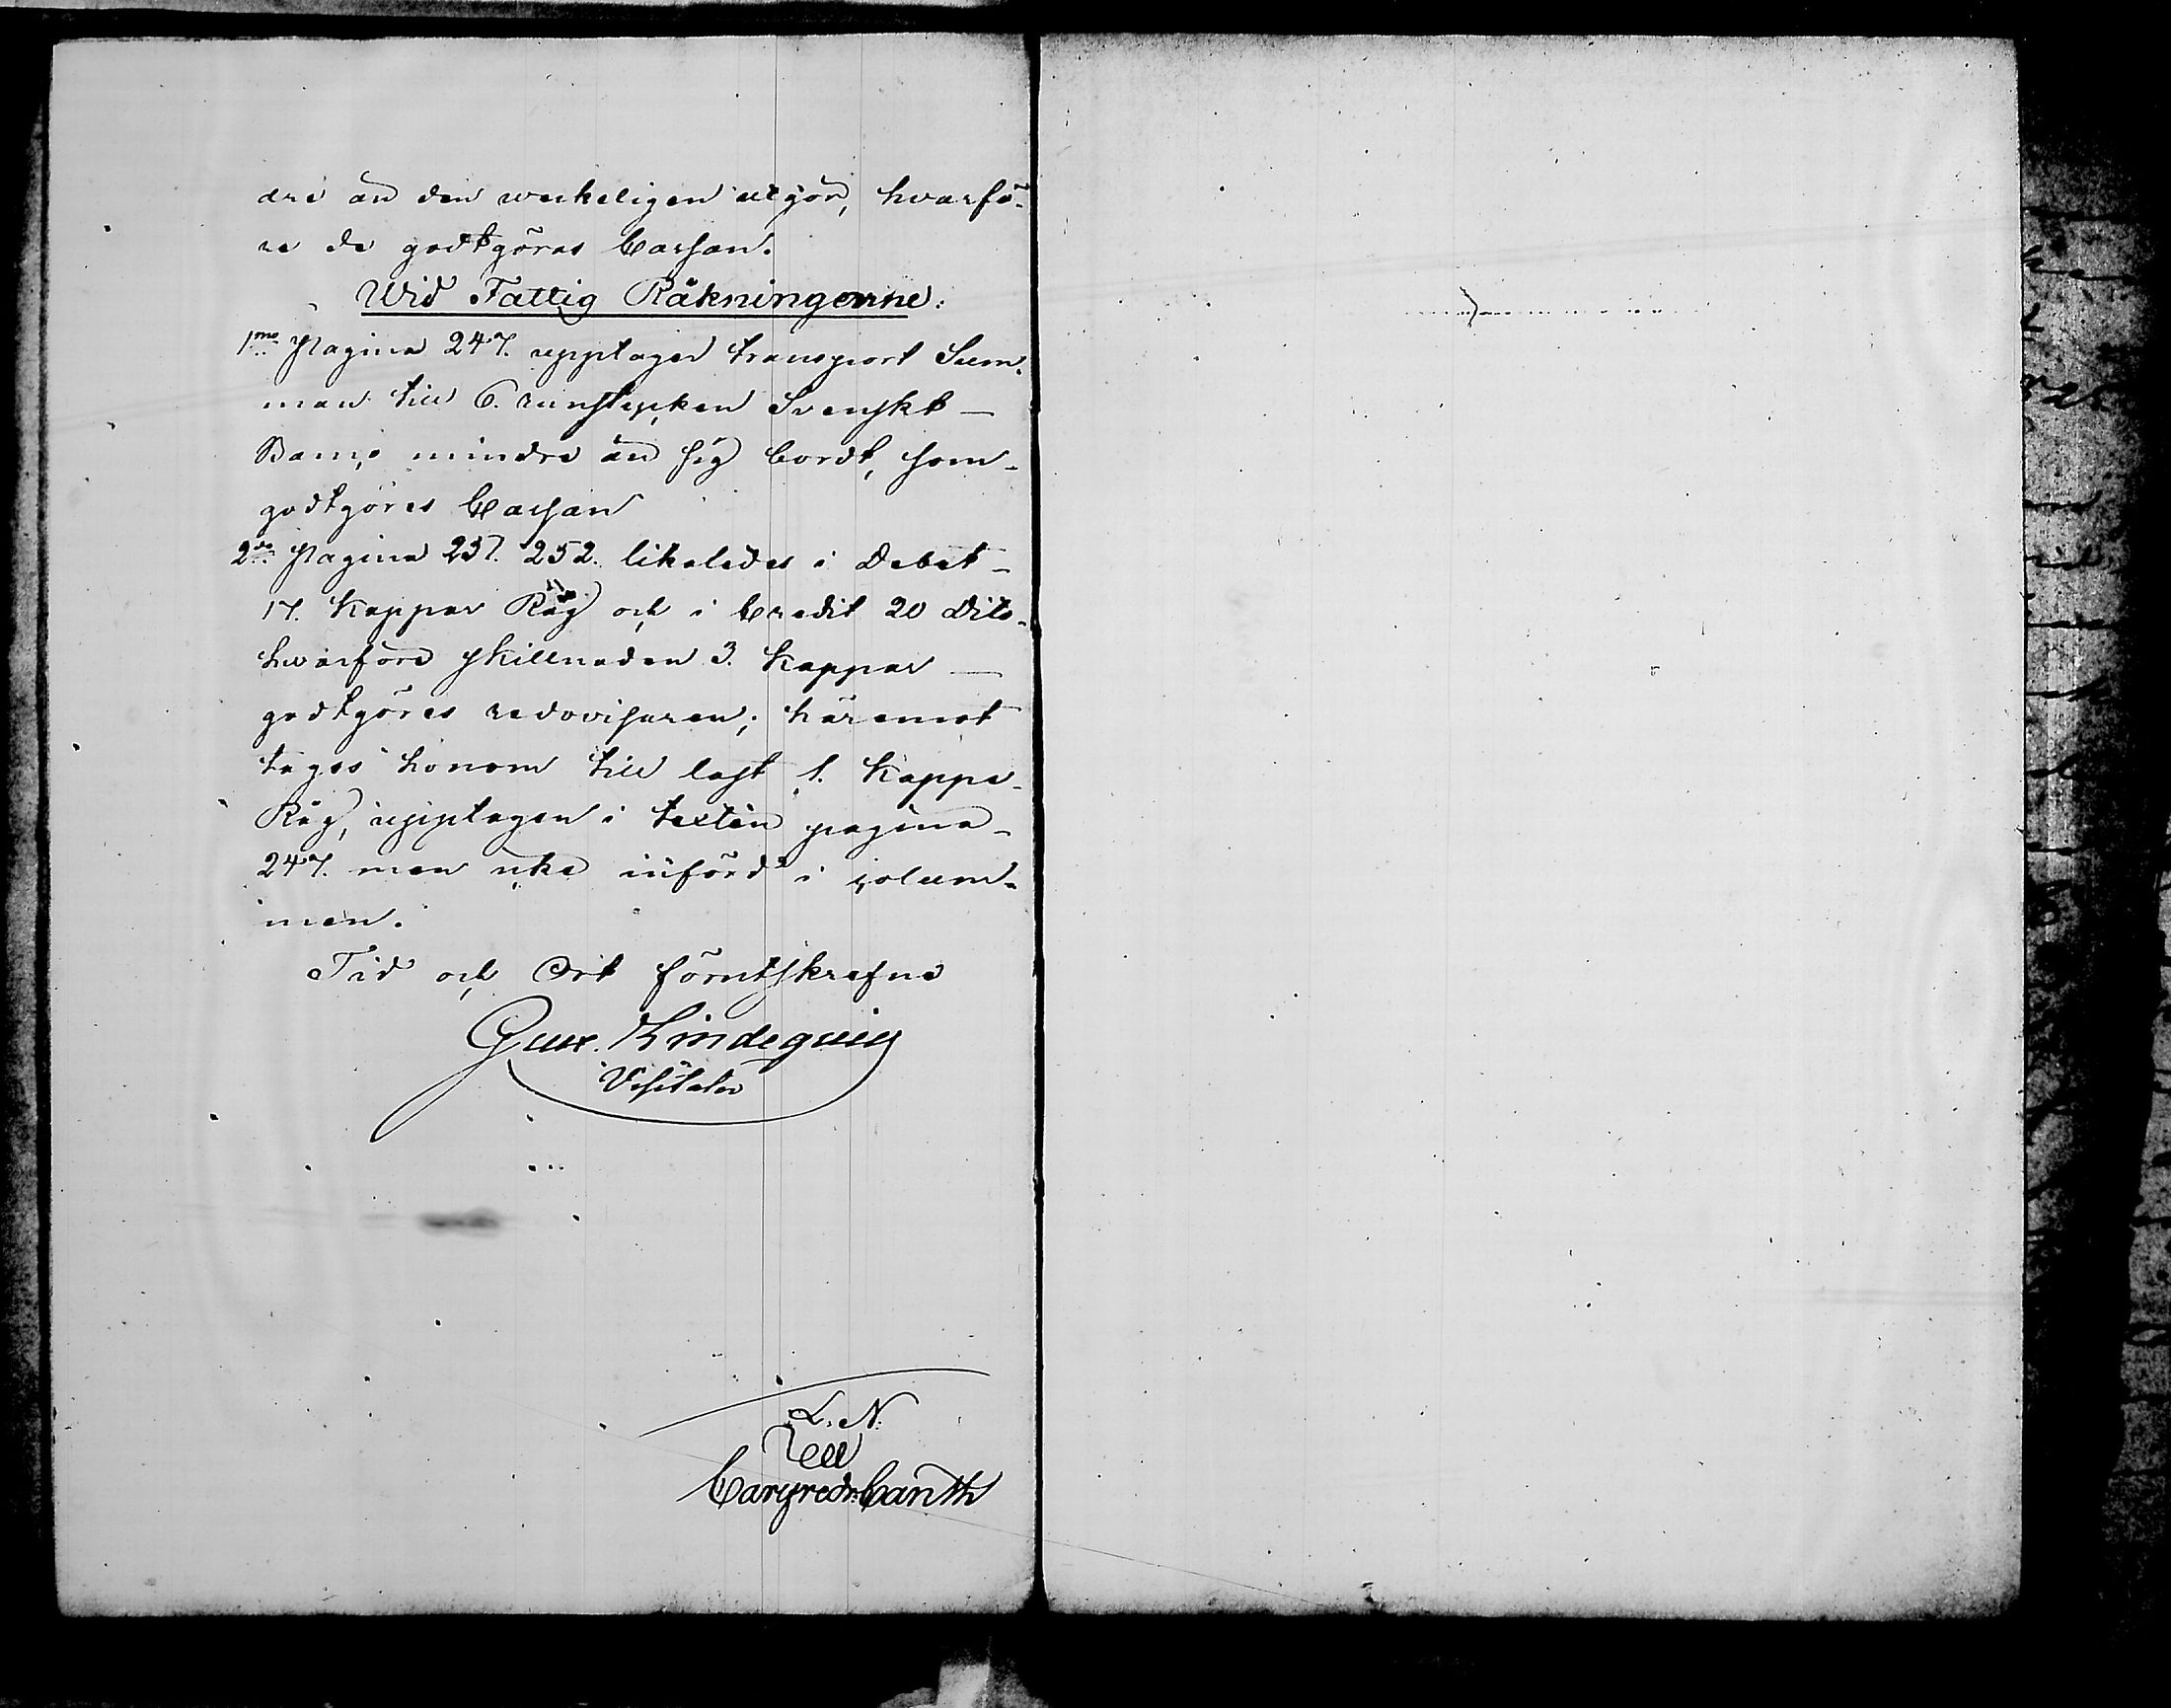 dre än den werkeligen utgör, hvarfö-
re de godtgöras Cassan.
Wid Fattig Räkningerne:
1mo Pagina 247. upptages transport Sum-
man till 6. runstycken Svenskt
Banco mindre än sig bordt, som
godtgöres Cassan
2do Pagina 252. likaledes i Debet
17. Kappar Råg och i Credit 20 Dito
hvarföre skillnaden 3. Kappar
godtgöres redovisaren; häremot
tages honom till last 1. Kappe
Råg, upptagen i texten pagina
247. men icke införd i colum-
men.
Tid och Ort förutskrefne
Gust. Lindequist
Visitator
L. N.